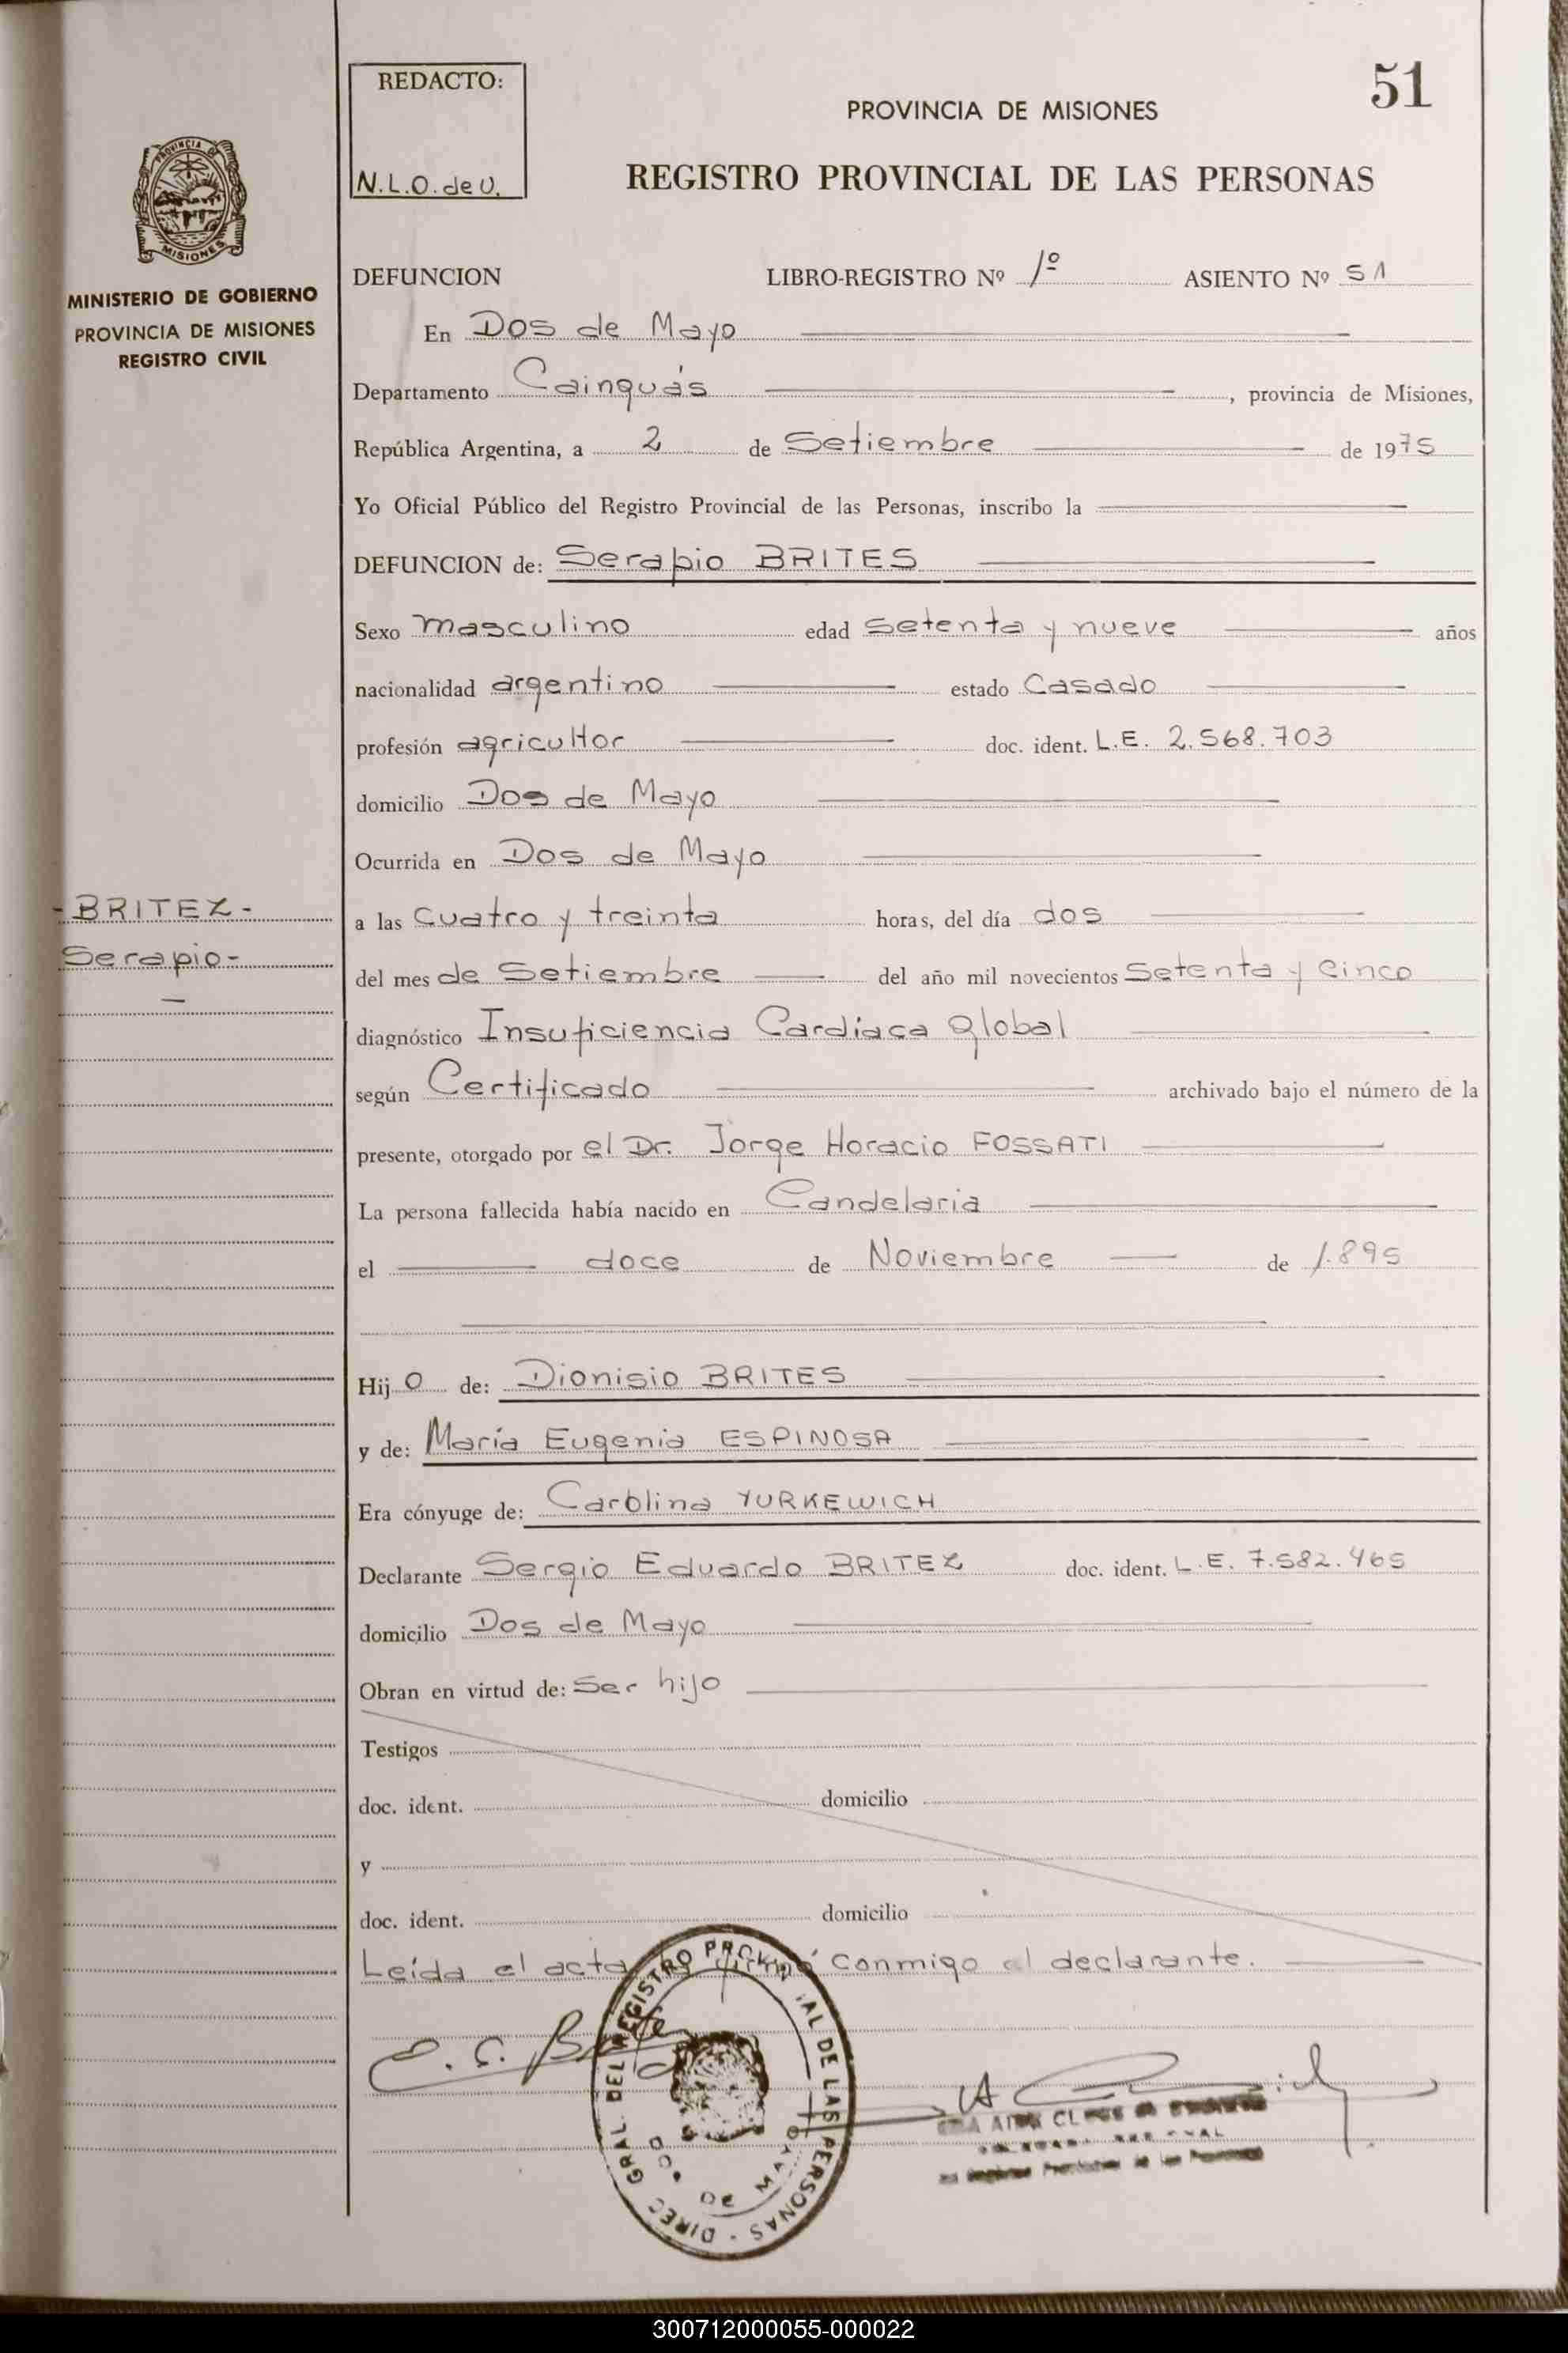 51
REDACTO:
N.L.O. de U.
PROVINCIA DE MISIONES
REGISTRO PROVINCIAL DE LAS PERSONAS
PROVINCIA DE
MISIONES
MINISTERIO DE GOBIERNO
PROVINCIA DE MISIONES
REGISTRO CIVIL
DEFUNCION LIBRO-REGISTRO Nº 1º ASIENTO Nº 51
En Dos de Mayo
Departamento Cainguás, provincia de Misiones,
República Argentina, a 2 de Setiembre de 1975
Yo Oficial Público del Registro Provincial de las Personas, inscribo la
DEFUNCION de: Serapio BRITES
Sexo masculino edad setenta y nueve años
nacionalidad argentino estado Casado
profesión agricultor doc. ident. L.E. 2.568.703
domicilio Dos de Mayo
Ocurrida en Dos de Mayo
-BRITEZ-
Serapio-
a las Cuatro y treinta horas, del día dos
del mes de Setiembre del año mil novecientos Setenta y Cinco
diagnóstico Insuficiencia Cardíaca Global
según Certificado archivado bajo el número de la
presente, otorgado por el Dr. Jorge Horacio FOSSATI
La persona fallecida había nacido en Candelaria
el doce de Noviembre de 1.895
Hijo de: Dionisio BRITES
y de: María Eugenia ESPINOSA
Era cónyuge de: Carolina YURKEWICH
Declarante Sergio Eduardo BRITEZ doc. ident. L.E. 7.582.465
domicilio Dos de Mayo
Obran en virtud de: Ser hijo
Testigos
doc. ident. domicilio
y
doc. ident. domicilio
Leída el acta conmigo el declarante.
DIREC. GRAL. DEL REGISTRO PROVINCIAL DE LAS PERSONAS -
DE MAYO
300712000055-000022